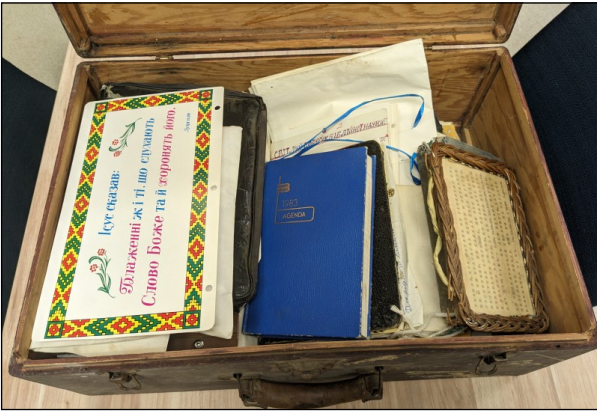 Ісус сказав:
Блаженні ж і ті, що слухають
Слово Боже та й хоронять його.
1983
AGENDA